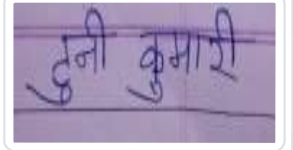 टुनी कुमारी